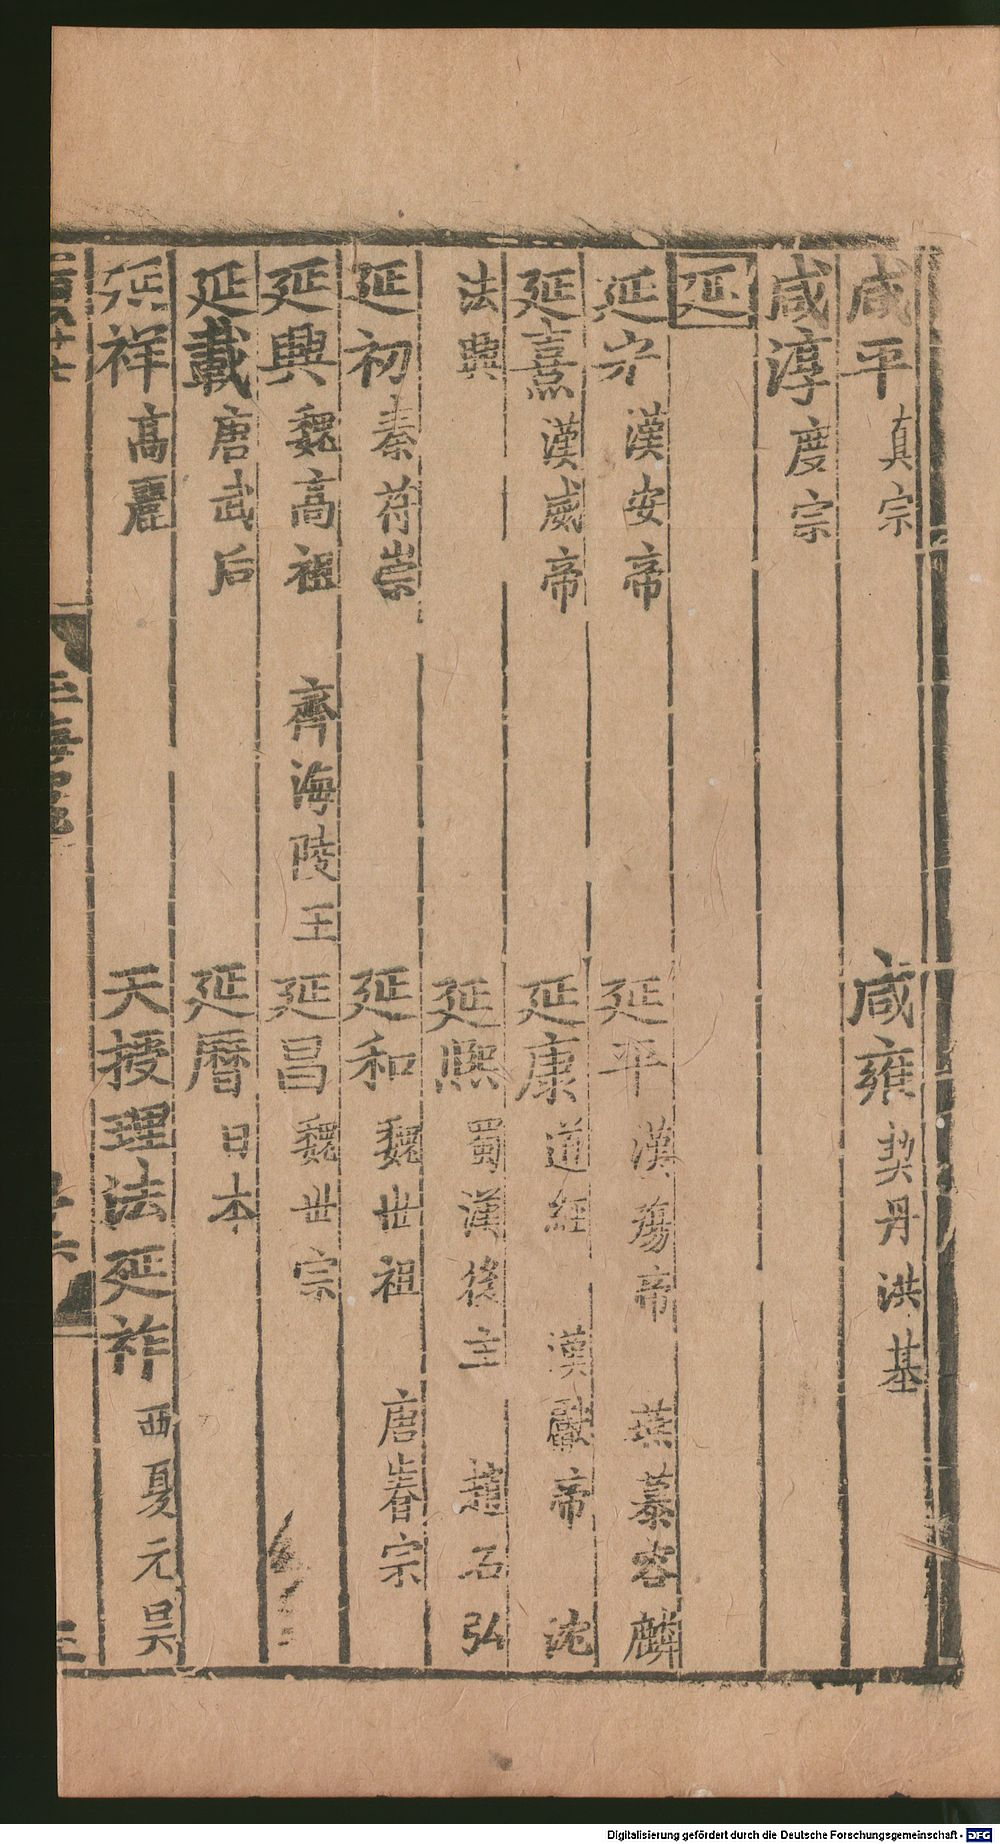 咸平 真宗 咸雍 契丹洪基
咸淳 度宗
延
延光 漢安帝 延平 漢殤帝 燕慕容麟
延熹 漢威帝 延康 道經 漢獻帝 沈
法興 延熙 蜀漢後主 趙石弘
延初 秦苻崇 延和 魏世祖 唐睿宗
延興 魏高祖 齊海陵王 延昌 魏世宗
延載 唐武后 延曆 日本
延祥 高麗 天授理法延祚 西夏元昊
Digitalisierung gefördert durch die Deutsche Forschungsgemeinschaft - DFG